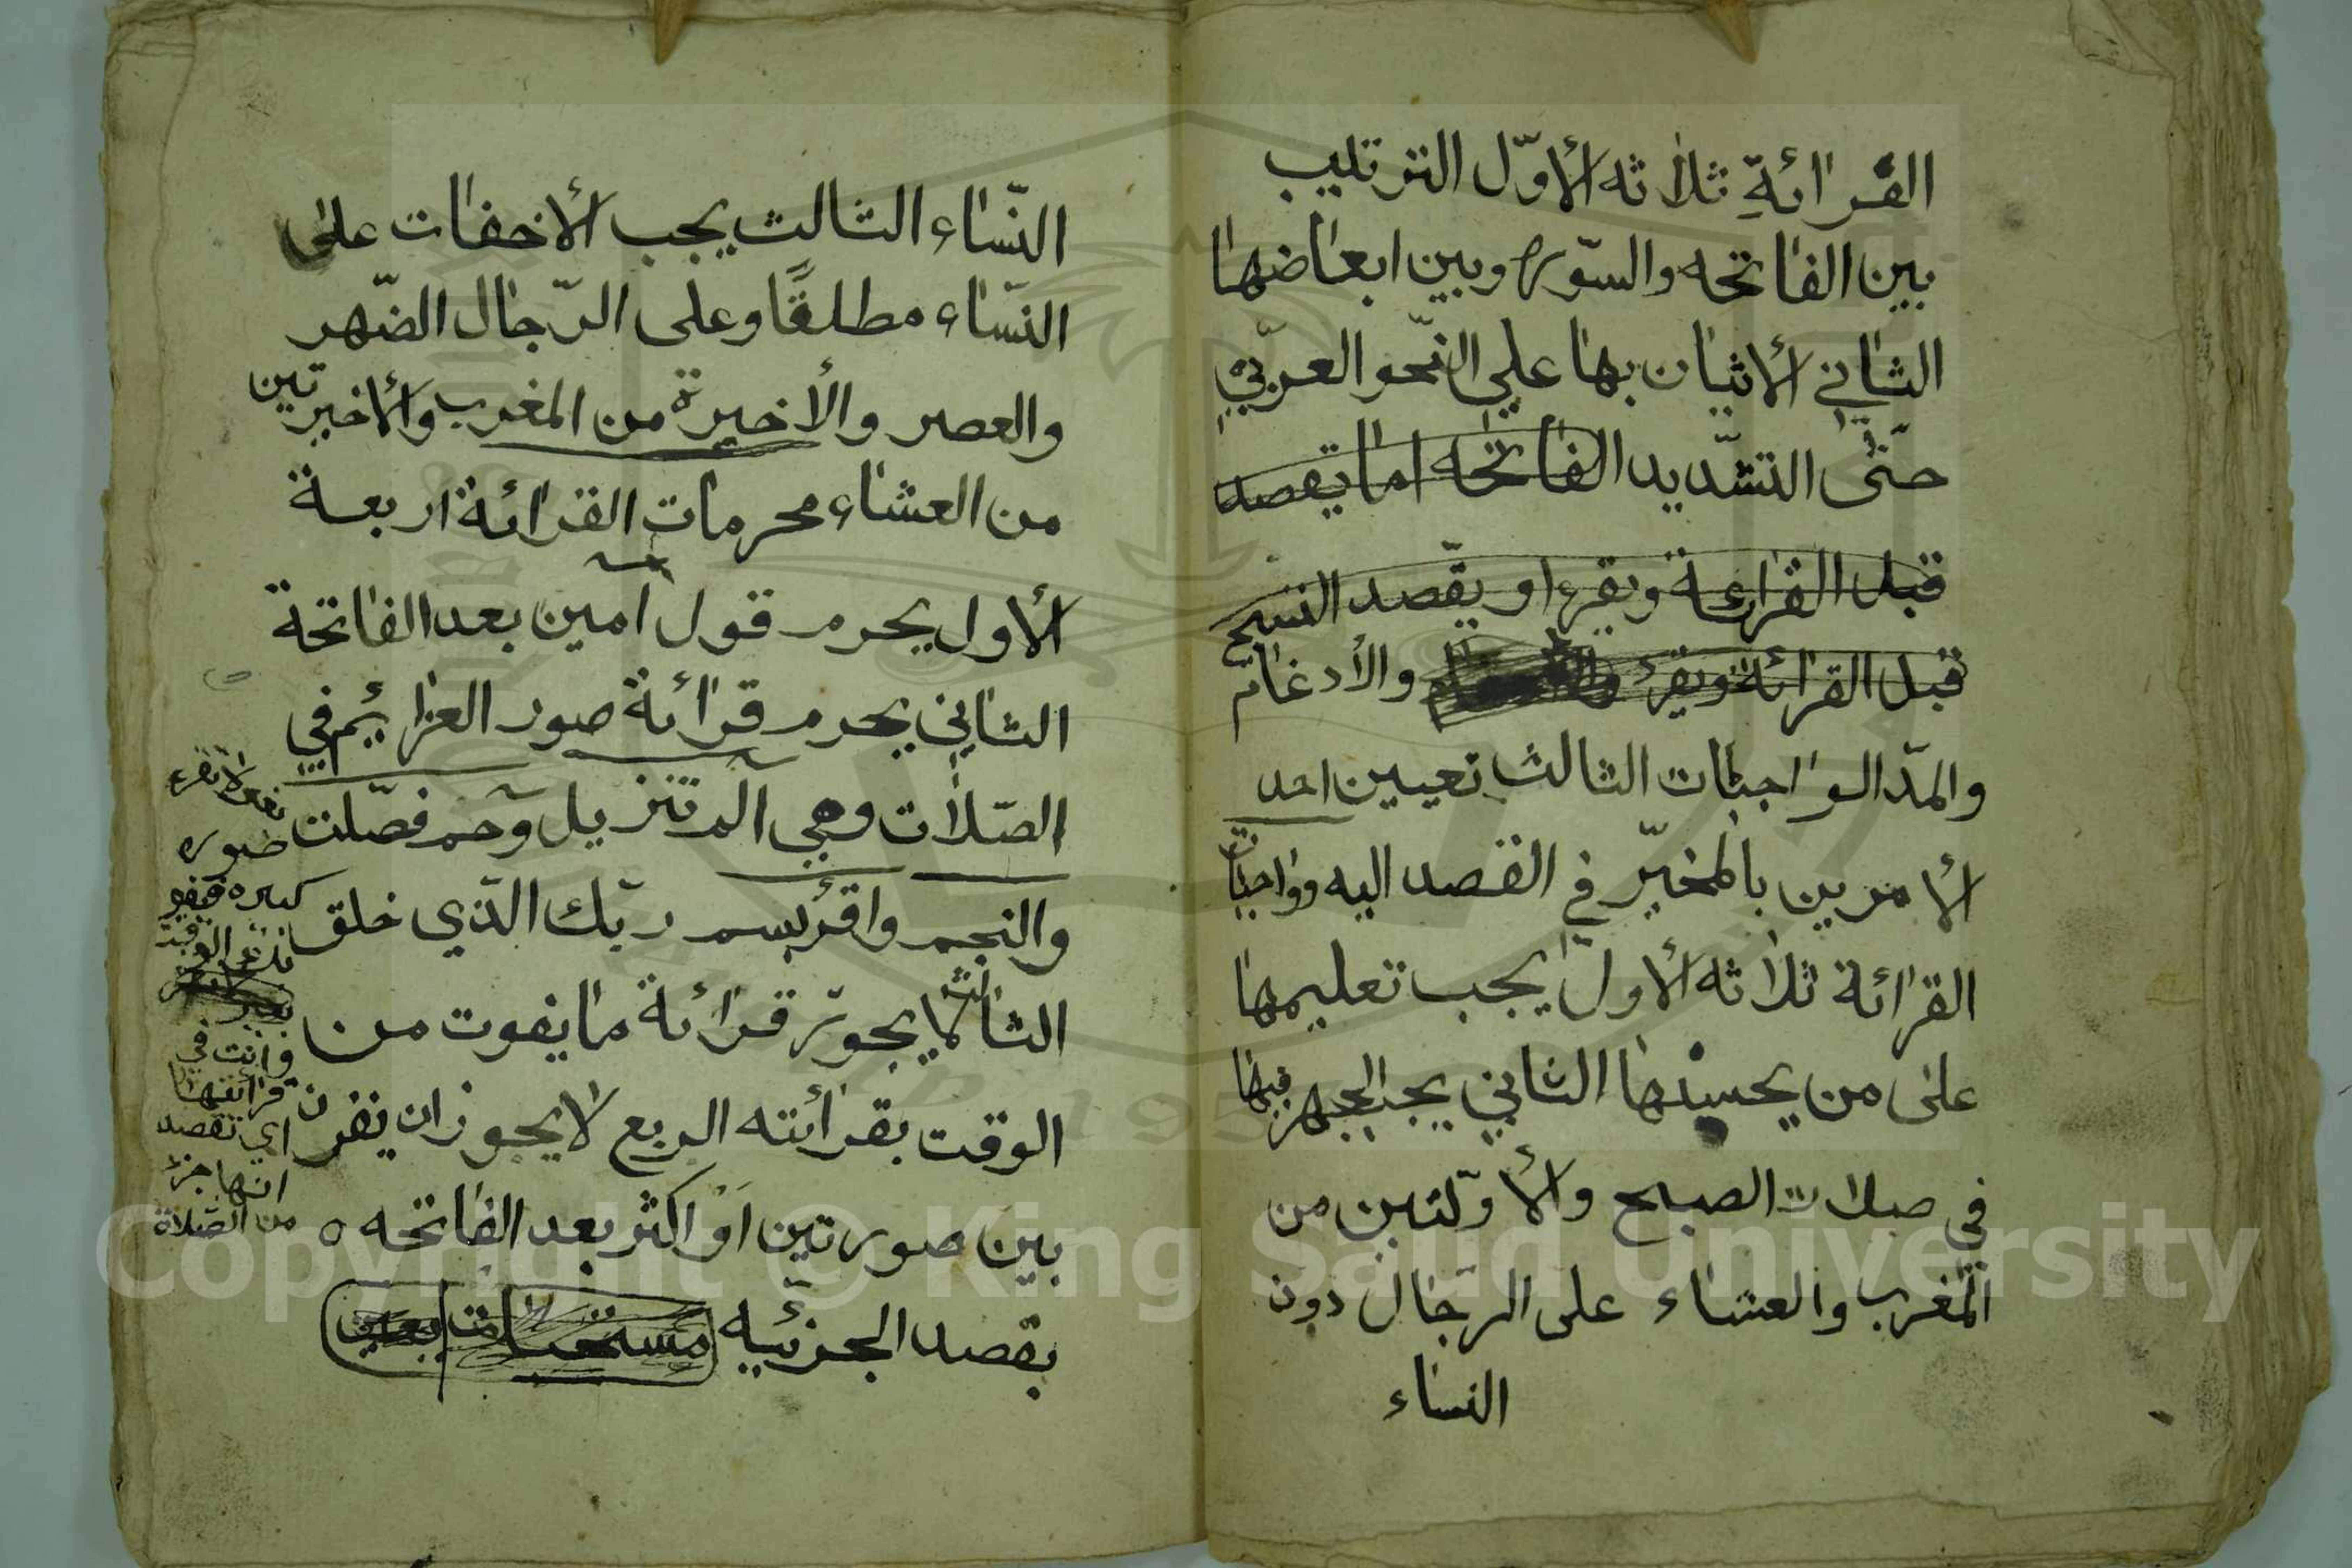 القرائة ثلاثه الأوّل الترتيب
بين الفاتحه والسّوره وبين ابعاضها
الثاني الأتيان بها علي النّحو العربّي
حتّى التشّديد الفاتحه اما يقصد
قبل القراءة ويقرء او يقّصد التسبيح
قبل القرائة ويقرئ والأدغام
والمدّ الواجبات الثالث تعيين احد
الأمرين بالمخيّر في القصد اليه وواجبات
القرائة ثلاثه الأول يجب تعليمها
على من يحسنها الثاني يجب الجهر فيها
في صلات الصبح والأوّلتين من
المغرب والعشاء على الرّجال دون
النساء
النّساء الثالث يجب الأخفات على
النسّاء مطلقًا وعلى الرّجال الضّهر
والعصر والأخيرة من المغرب والأخيرتين
من العشاء محرمات القرائة اربعة
الأول يحرم قول آمين بعد الفاتحة
الثاني يحرم قرائة صور العزائيم في
الصّلات وهي الم تنزيل وحم فصّلت
والنجم واقرٔ بسم ربّك الذّي خلق
الثالث لا يجوّز قرائة ما يفوت من
الوقت بقرائته الربع لا يجوز ان يقرن
بين صورتين اَوْ اكثر بعد الفاتحه ٥
بقصد الجزئيه مستحبات
لا تقرء
صوره
كبيره
وانت في
قرائتها
اي تقصد
انها جزء
من الصّلاة
Copyright © King Saud University